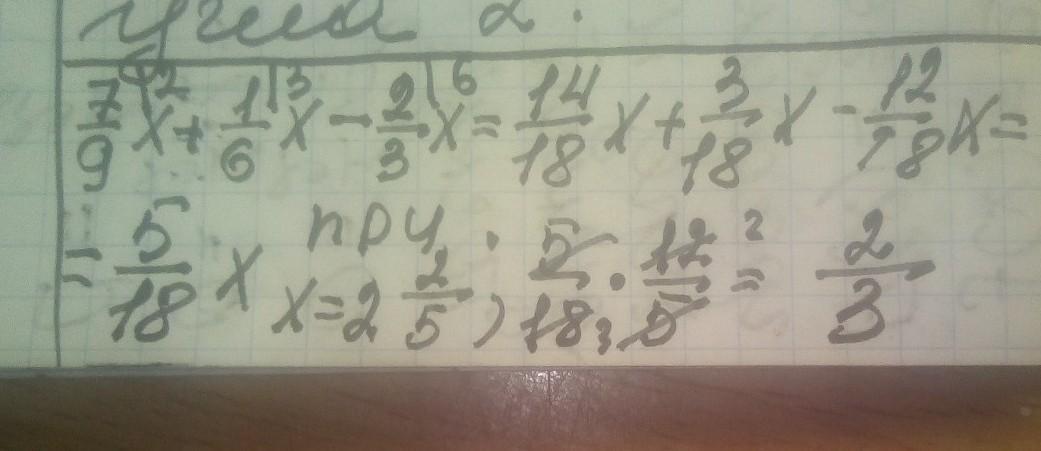 7/9 |2 x + 1/6 |3 x - 2/3 |6 x = 14/18 x + 3/18 x - 12/18 x =
= 5/18 x при x = 2 2/5, 5/18 3 · 12 2/5 = 2/3